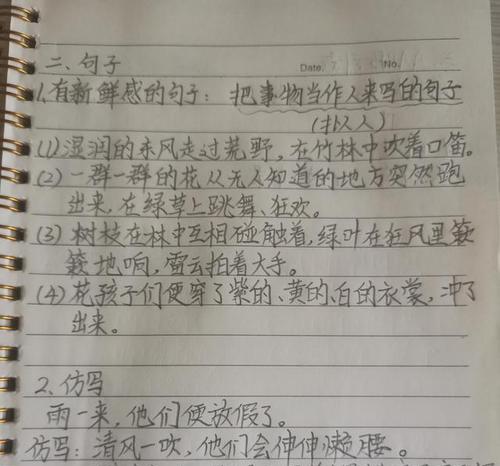 二、句子
Date. No.
1.有新鲜感的句子：把事物当作人来写的句子
(拟人)
(1)湿润的东风走过荒野，在竹林中吹着口笛。
(2)一群一群的花从无人知道的地方突然跑
出来，在绿草上跳舞、狂欢。
(3)树枝在林中互相碰触着，绿叶在狂风里簌
簌地响，雷云拍着大手。
(4)花孩子们便穿了紫的、黄的、白的衣裳，冲了
出来。
2、仿写
雨一来，他们便放假了。
仿写：清风一吹，他们会伸伸懒腰。